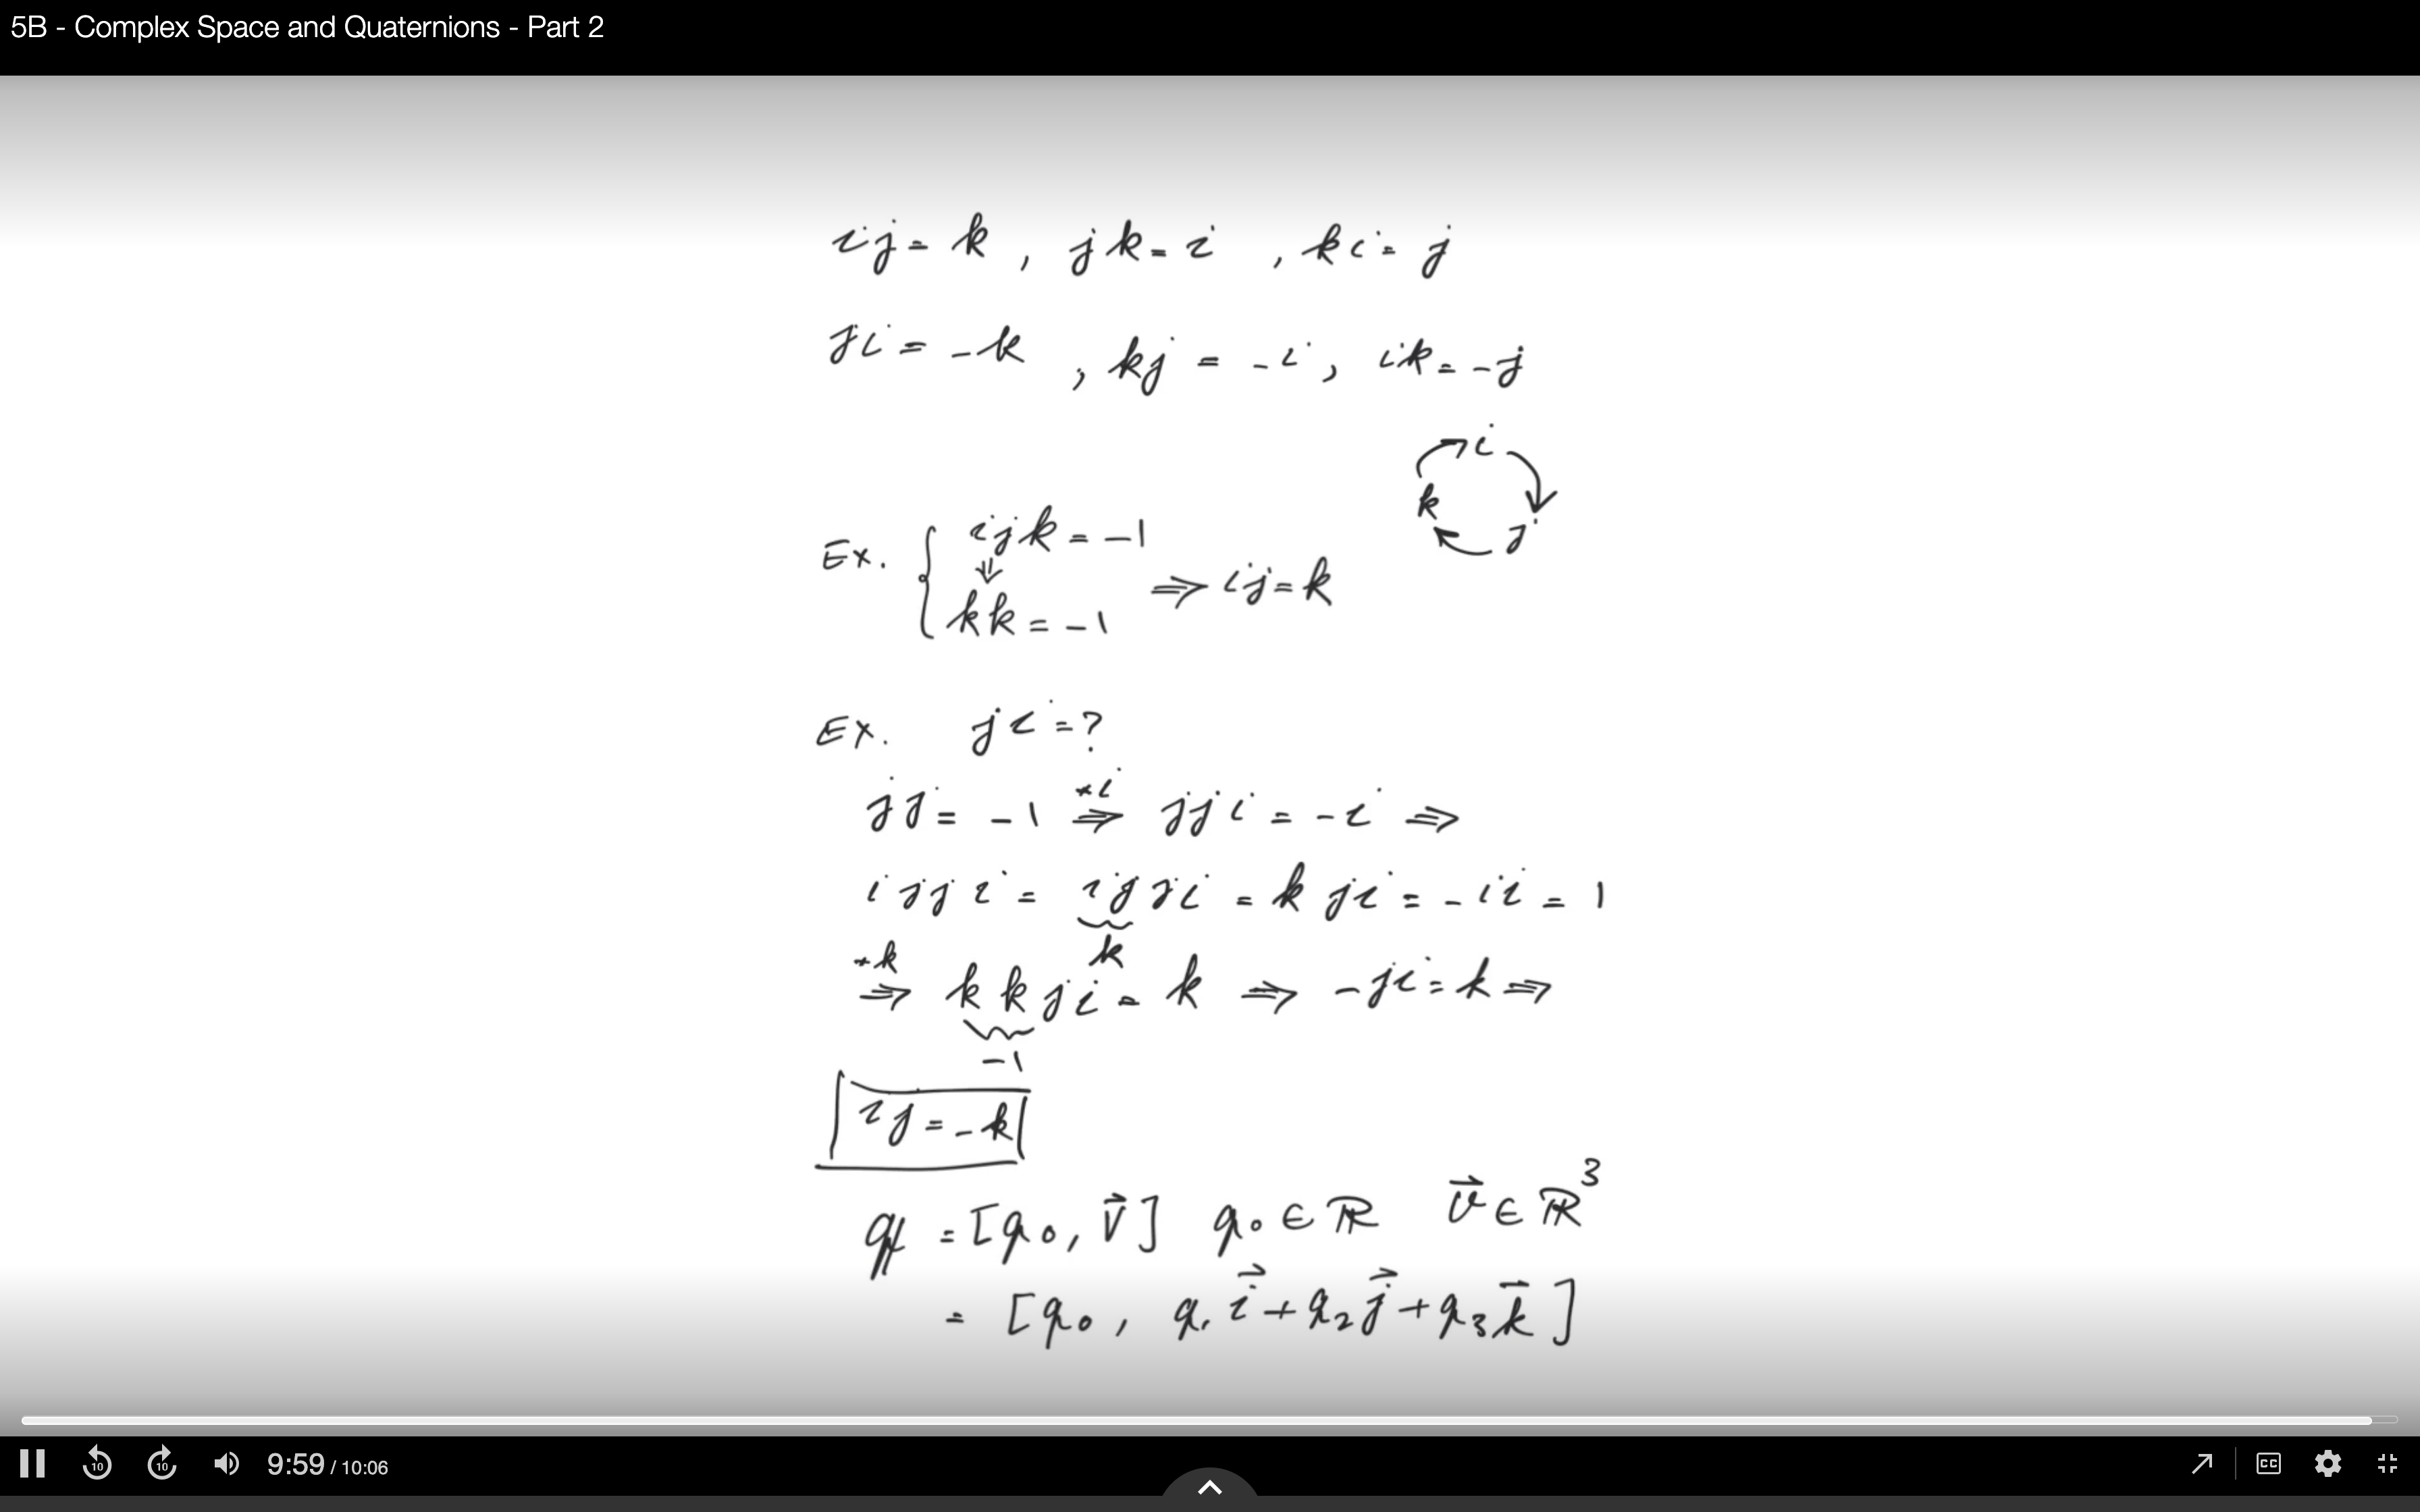 5B - Complex Space and Quaternions - Part 2
ij = k , jk = i , ki = j
ji = -k , kj = -i , ik = -j
i
k
j
Ex. { ijk = -1
⇓
kk = -1
⇒ ij = k
Ex. ji = ?
×i
jj = -1 ⇒ jji = -i ⇒
ijji = ijji = kji = -ii = 1
k
×k
⇒ kkji = k ⇒ -ji = k ⇒
-1
ij = -k
q = [q₀, v⃗] q₀ ∈ ℝ v⃗ ∈ ℝ³
= [q₀, q₁ i⃗ + q₂ j⃗ + q₃ k⃗]
10
10
9:59 / 10:06
CC